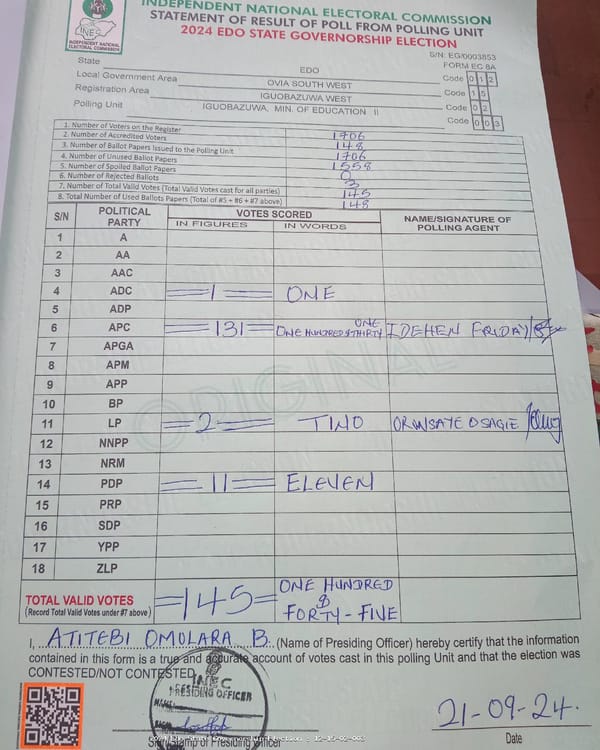 INDEPENDENT NATIONAL ELECTORAL COMMISSION
STATEMENT OF RESULT OF POLL FROM POLLING UNIT
2024 EDO STATE GOVERNORSHIP ELECTION
INEC
INDEPENDENT NATIONAL
ELECTORAL COMMISSION
S/N: EG/0003853
FORM EC 8A
State EDO Code 0 1 2
Local Government Area OVIA SOUTH WEST Code 1 5
Registration Area IGUOBAZUWA WEST Code 0 2
Polling Unit IGUOBAZUWA, MIN. OF EDUCATION II Code 0 0 3
1. Number of Voters on the Register 1706
2. Number of Accredited Voters 148
3. Number of Ballot Papers Issued to the Polling Unit 1706
4. Number of Unused Ballot Papers 1558
5. Number of Spoiled Ballot Papers 0
6. Number of Rejected Ballots 3
7. Number of Total Valid Votes (Total Valid Votes cast for all parties) 145
8. Total Number of Used Ballots Papers (Total of #5 + #6 + #7 above) 148
S/N POLITICAL PARTY VOTES SCORED NAME/SIGNATURE OF POLLING AGENT
IN FIGURES IN WORDS
1 A
2 AA
3 AAC
4 ADC =1= ONE
5 ADP
6 APC =131= ONE HUNDRED & THIRTY ONE IDEHEN FRIDAY
7 APGA
8 APM
9 APP
10 BP
11 LP =2= TWO ORUNSAYE OSAGIE
12 NNPP
13 NRM
14 PDP =11= ELEVEN
15 PRP
16 SDP
17 YPP
18 ZLP
ORIGINAL
TOTAL VALID VOTES =145= ONE HUNDRED & FORTY-FIVE
(Record Total Valid Votes under #7 above)
I, ATITEBI OMOLARA B. (Name of Presiding Officer) hereby certify that the information
contained in this form is a true and accurate account of votes cast in this polling Unit and that the election was
CONTESTED/NOT CONTESTED
INEC
PRESIDING OFFICER
21-09-24.
Sign/Stamp of Presiding Officer
Date